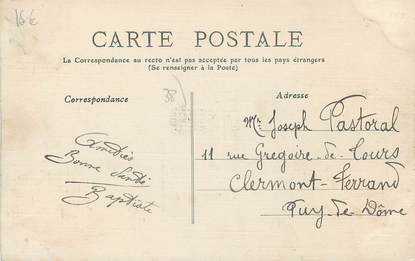 15€
CARTE POSTALE
La Correspondance au recto n'est pas acceptée par tous les pays étrangers
(Se renseigner à la Poste)
38
Correspondance
Adresse
Mr Joseph Pastoral
11 rue Gregoire-de-Tours
Clermont-Ferrand
Puy-de-Dôme
Amitiés
Bonne Santé
Baptiste